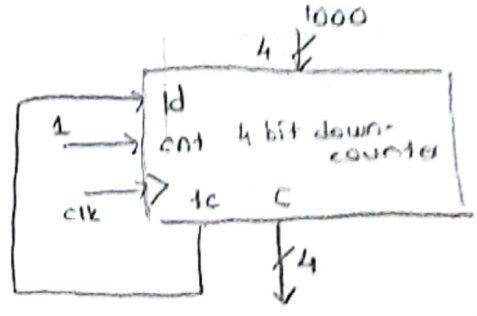 1000
4
ld
1
cnt 4 bit down-
counter
clk
tc C
4